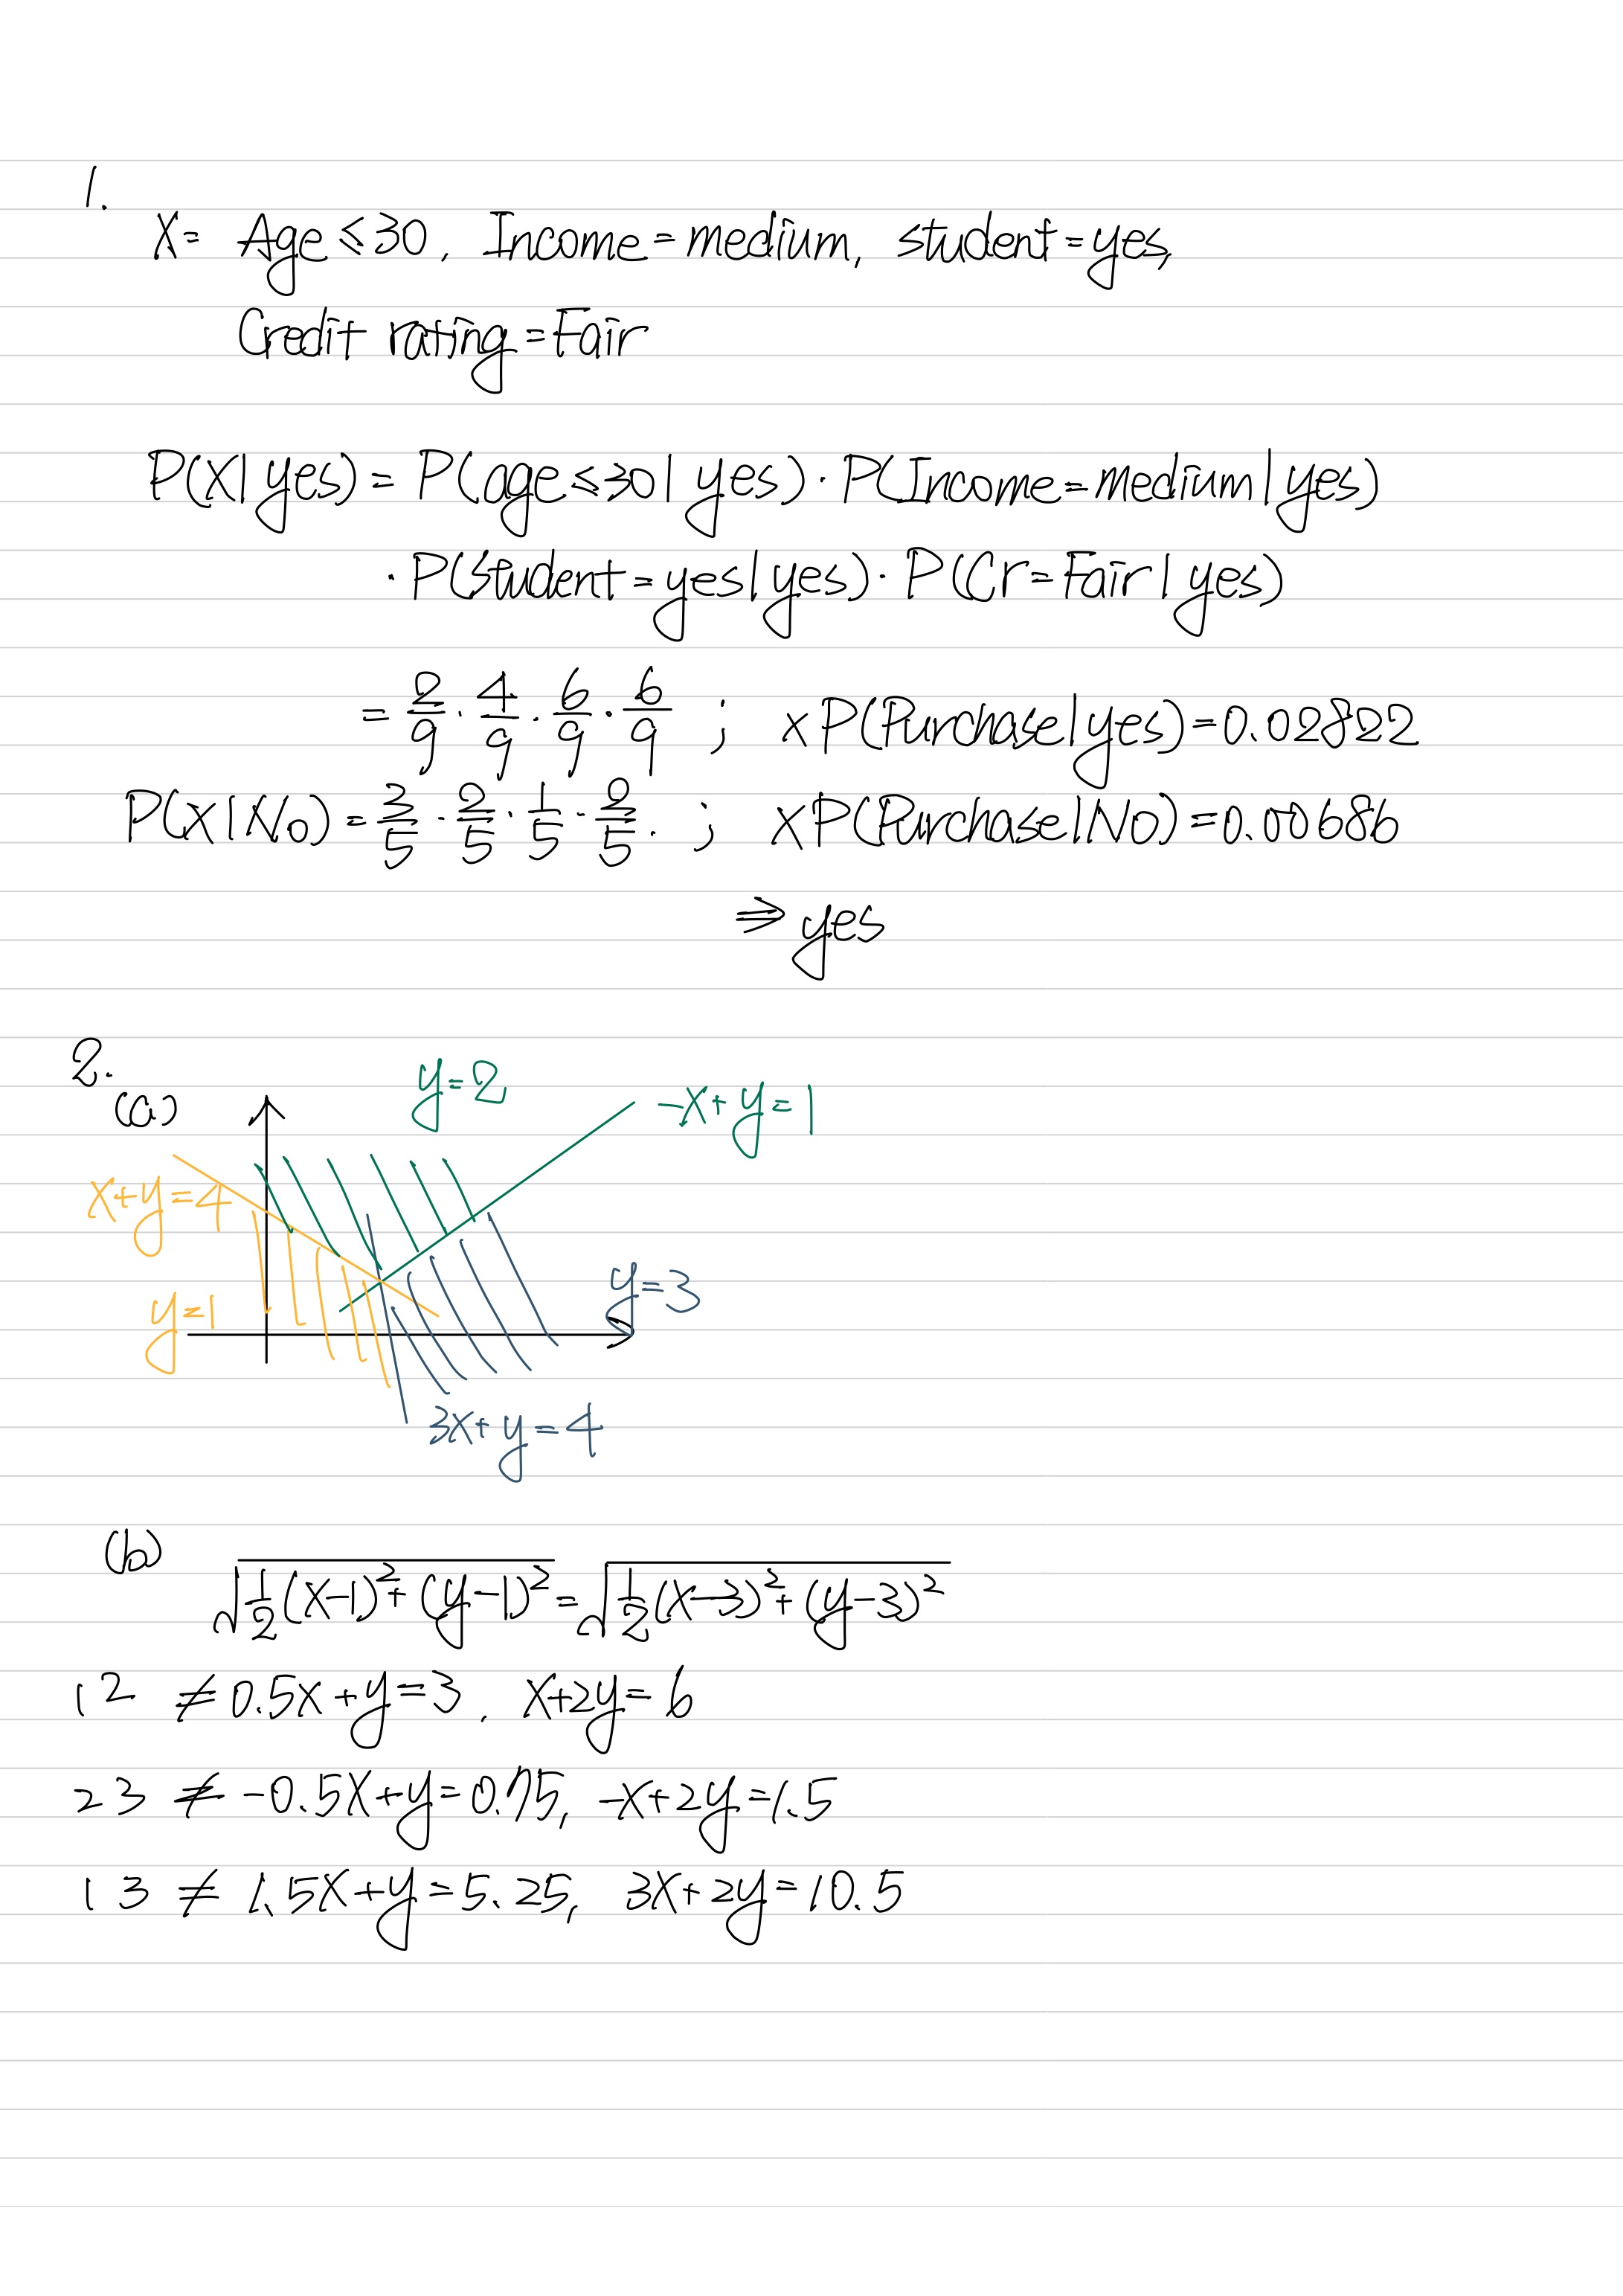 1.
X= Age ≤30, Income=medium, student=yes,
Credit rating=Fair
P(X|yes) = P(age≤30|yes)·P(Income=medium|yes)
·P(Student=yes|yes)·P(Cr=Fair|yes)
= 2/9 · 4/9 · 6/9 · 6/9 ; xP(Purchase|yes)=0.02822
P(X|No) = 3/5 · 2/5 · 1/5 · 2/5 . ; xP(Purchase|No)=0.00686
⇒ yes
2.
(a)
y=2
-x+y=1
x+y=4
y=1
y=3
3x+y=4
(b)
√(1/2(x-1)²+(y-1)²) = √(1/2(x-3)²+(y-3)²)
12 ≠ 0.5x+y=3, x+2y=6
23 ≠ -0.5x+y=0.75, -x+2y=1.5
13 ≠ 1.5x+y=5.25, 3x+2y=10.5